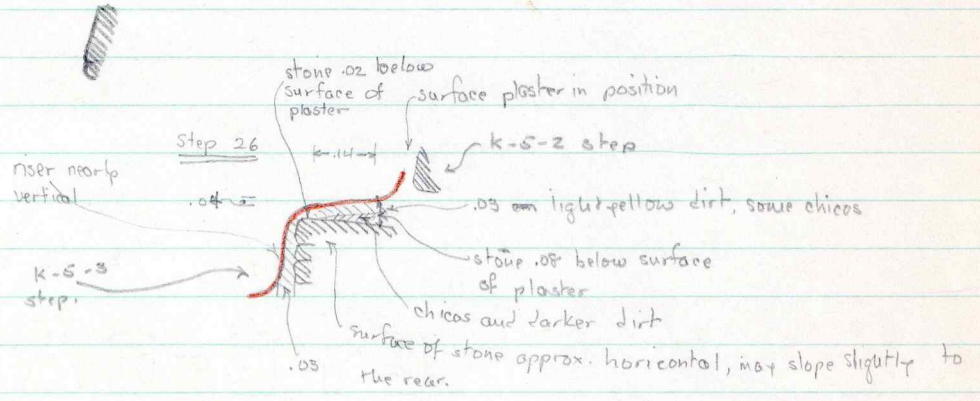 stone .02 below
surface of
plaster
surface plaster in position
Step 26
.14
K-5-2 step
riser nearly
vertical
.04
.03 light yellow dirt, some chicos
stone .08 below surface
of plaster
K-5-3
step.
chicos and darker dirt
surface of stone approx. horizontal, may slope slightly to
the rear.
.03